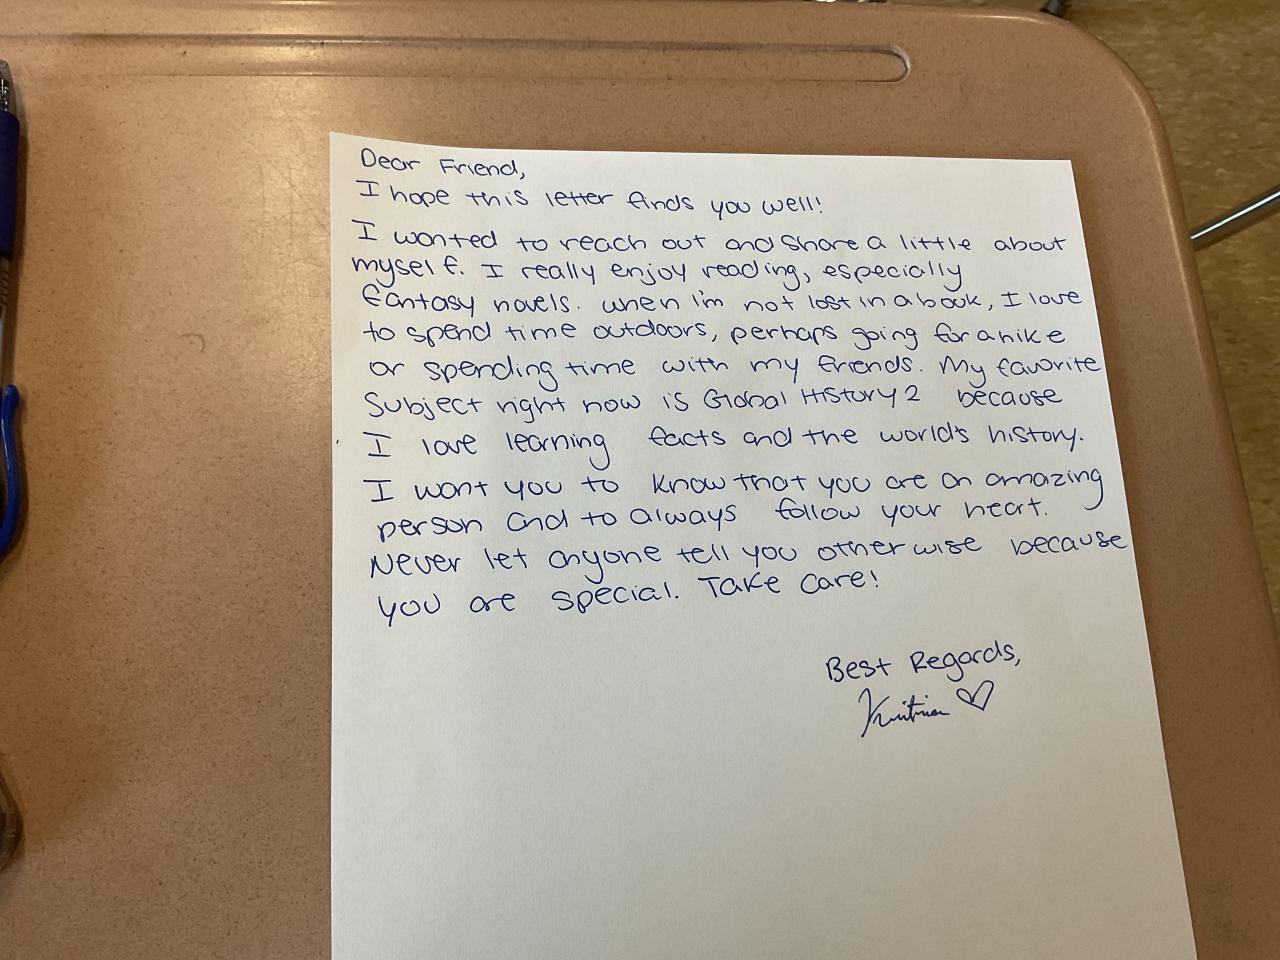 Dear Friend,
I hope this letter finds you well!
I wanted to reach out and share a little about
myself. I really enjoy reading, especially
fantasy novels. when I'm not lost in a book, I love
to spend time outdoors, perhaps going for a hike
or spending time with my friends. My favorite
Subject right now is Global History 2 because
I love learning facts and the world's history.
I want you to know that you are an amazing
person and to always follow your heart.
Never let anyone tell you otherwise because
you are special. Take care!
Best Regards,